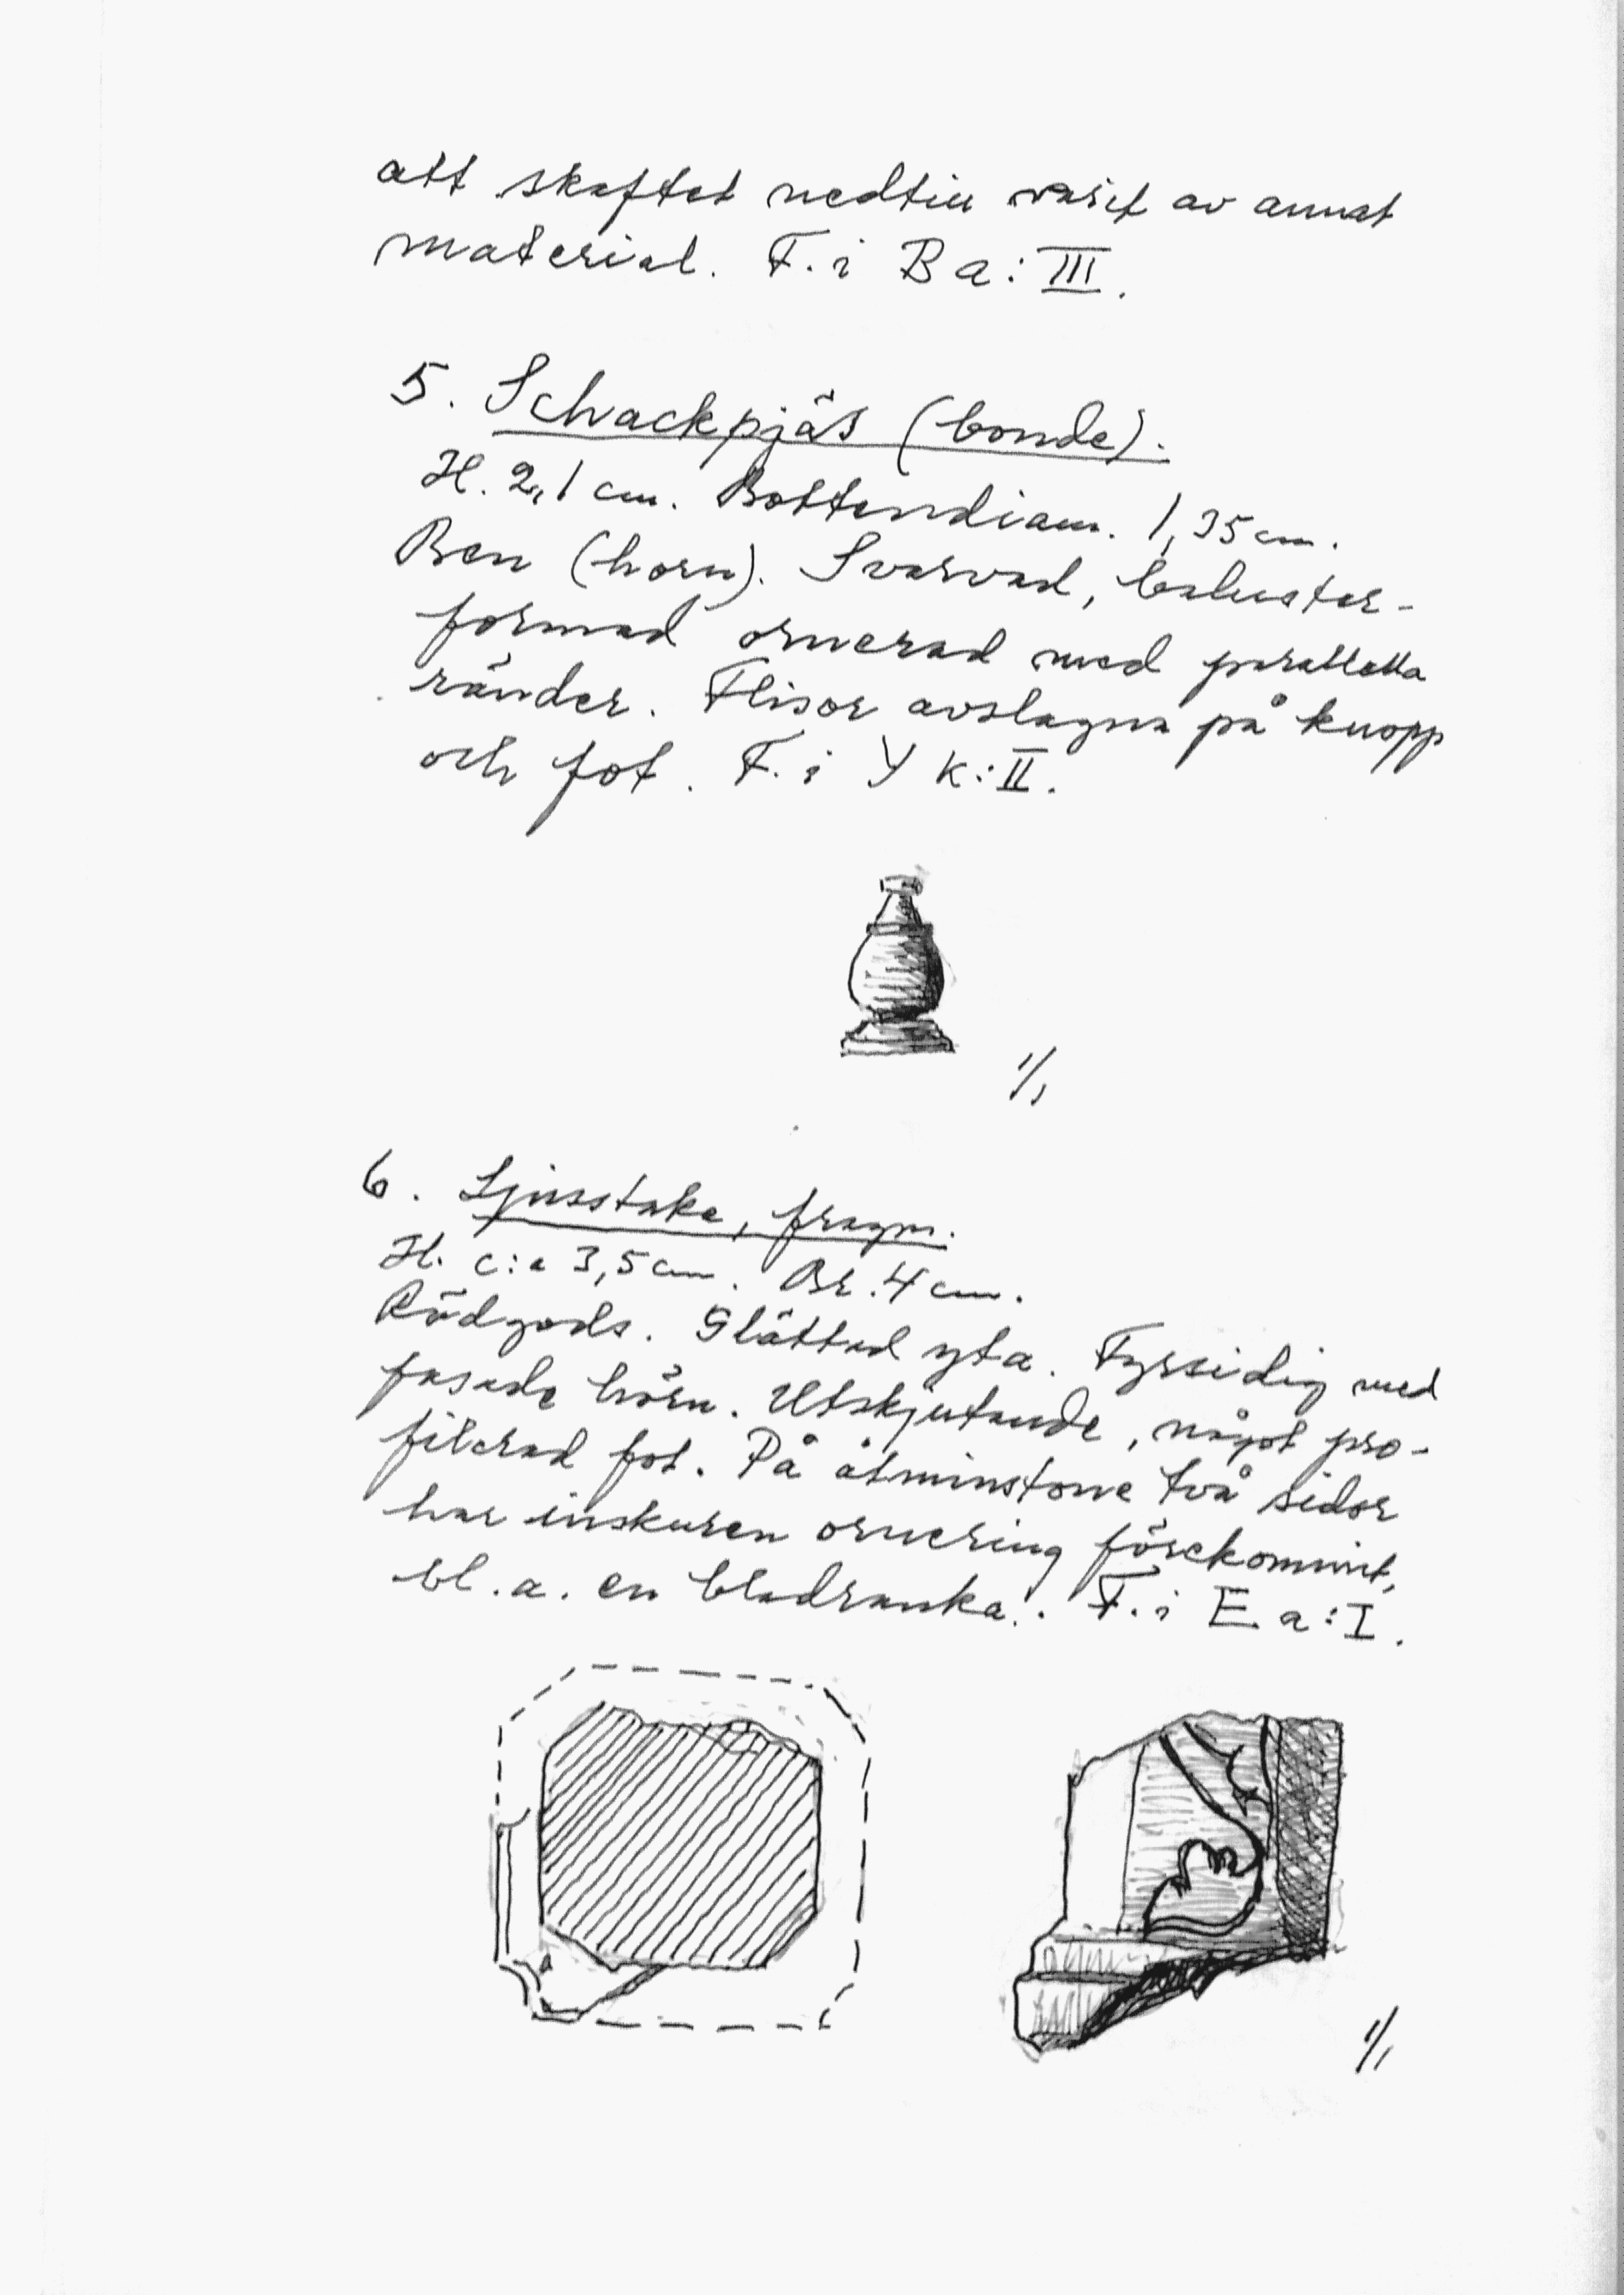 att skaftet nedtill varit av annat
material. F. i B a: III.
5. Schackpjäs (bonde).
H. 2,1 cm. Bottendiam. 1,35 cm.
Ben (horn). Svarvad, baluster-
formad ornerad med parallella
ränder. Flisor avslagna på knopp
och fot. F. i Y k: II.
1/1
6. Ljusstake, fragm.
H. c:a 3,5 cm. Br. 4 cm.
Rödgods. Glättad yta. Fyrsidig med
fasade hörn. Utskjutande, något pro-
filerad fot. På åtminstone två sidor
har inskuren ornering förekommit,
bl. a. en bladranka. F. i E a: I.
1/1